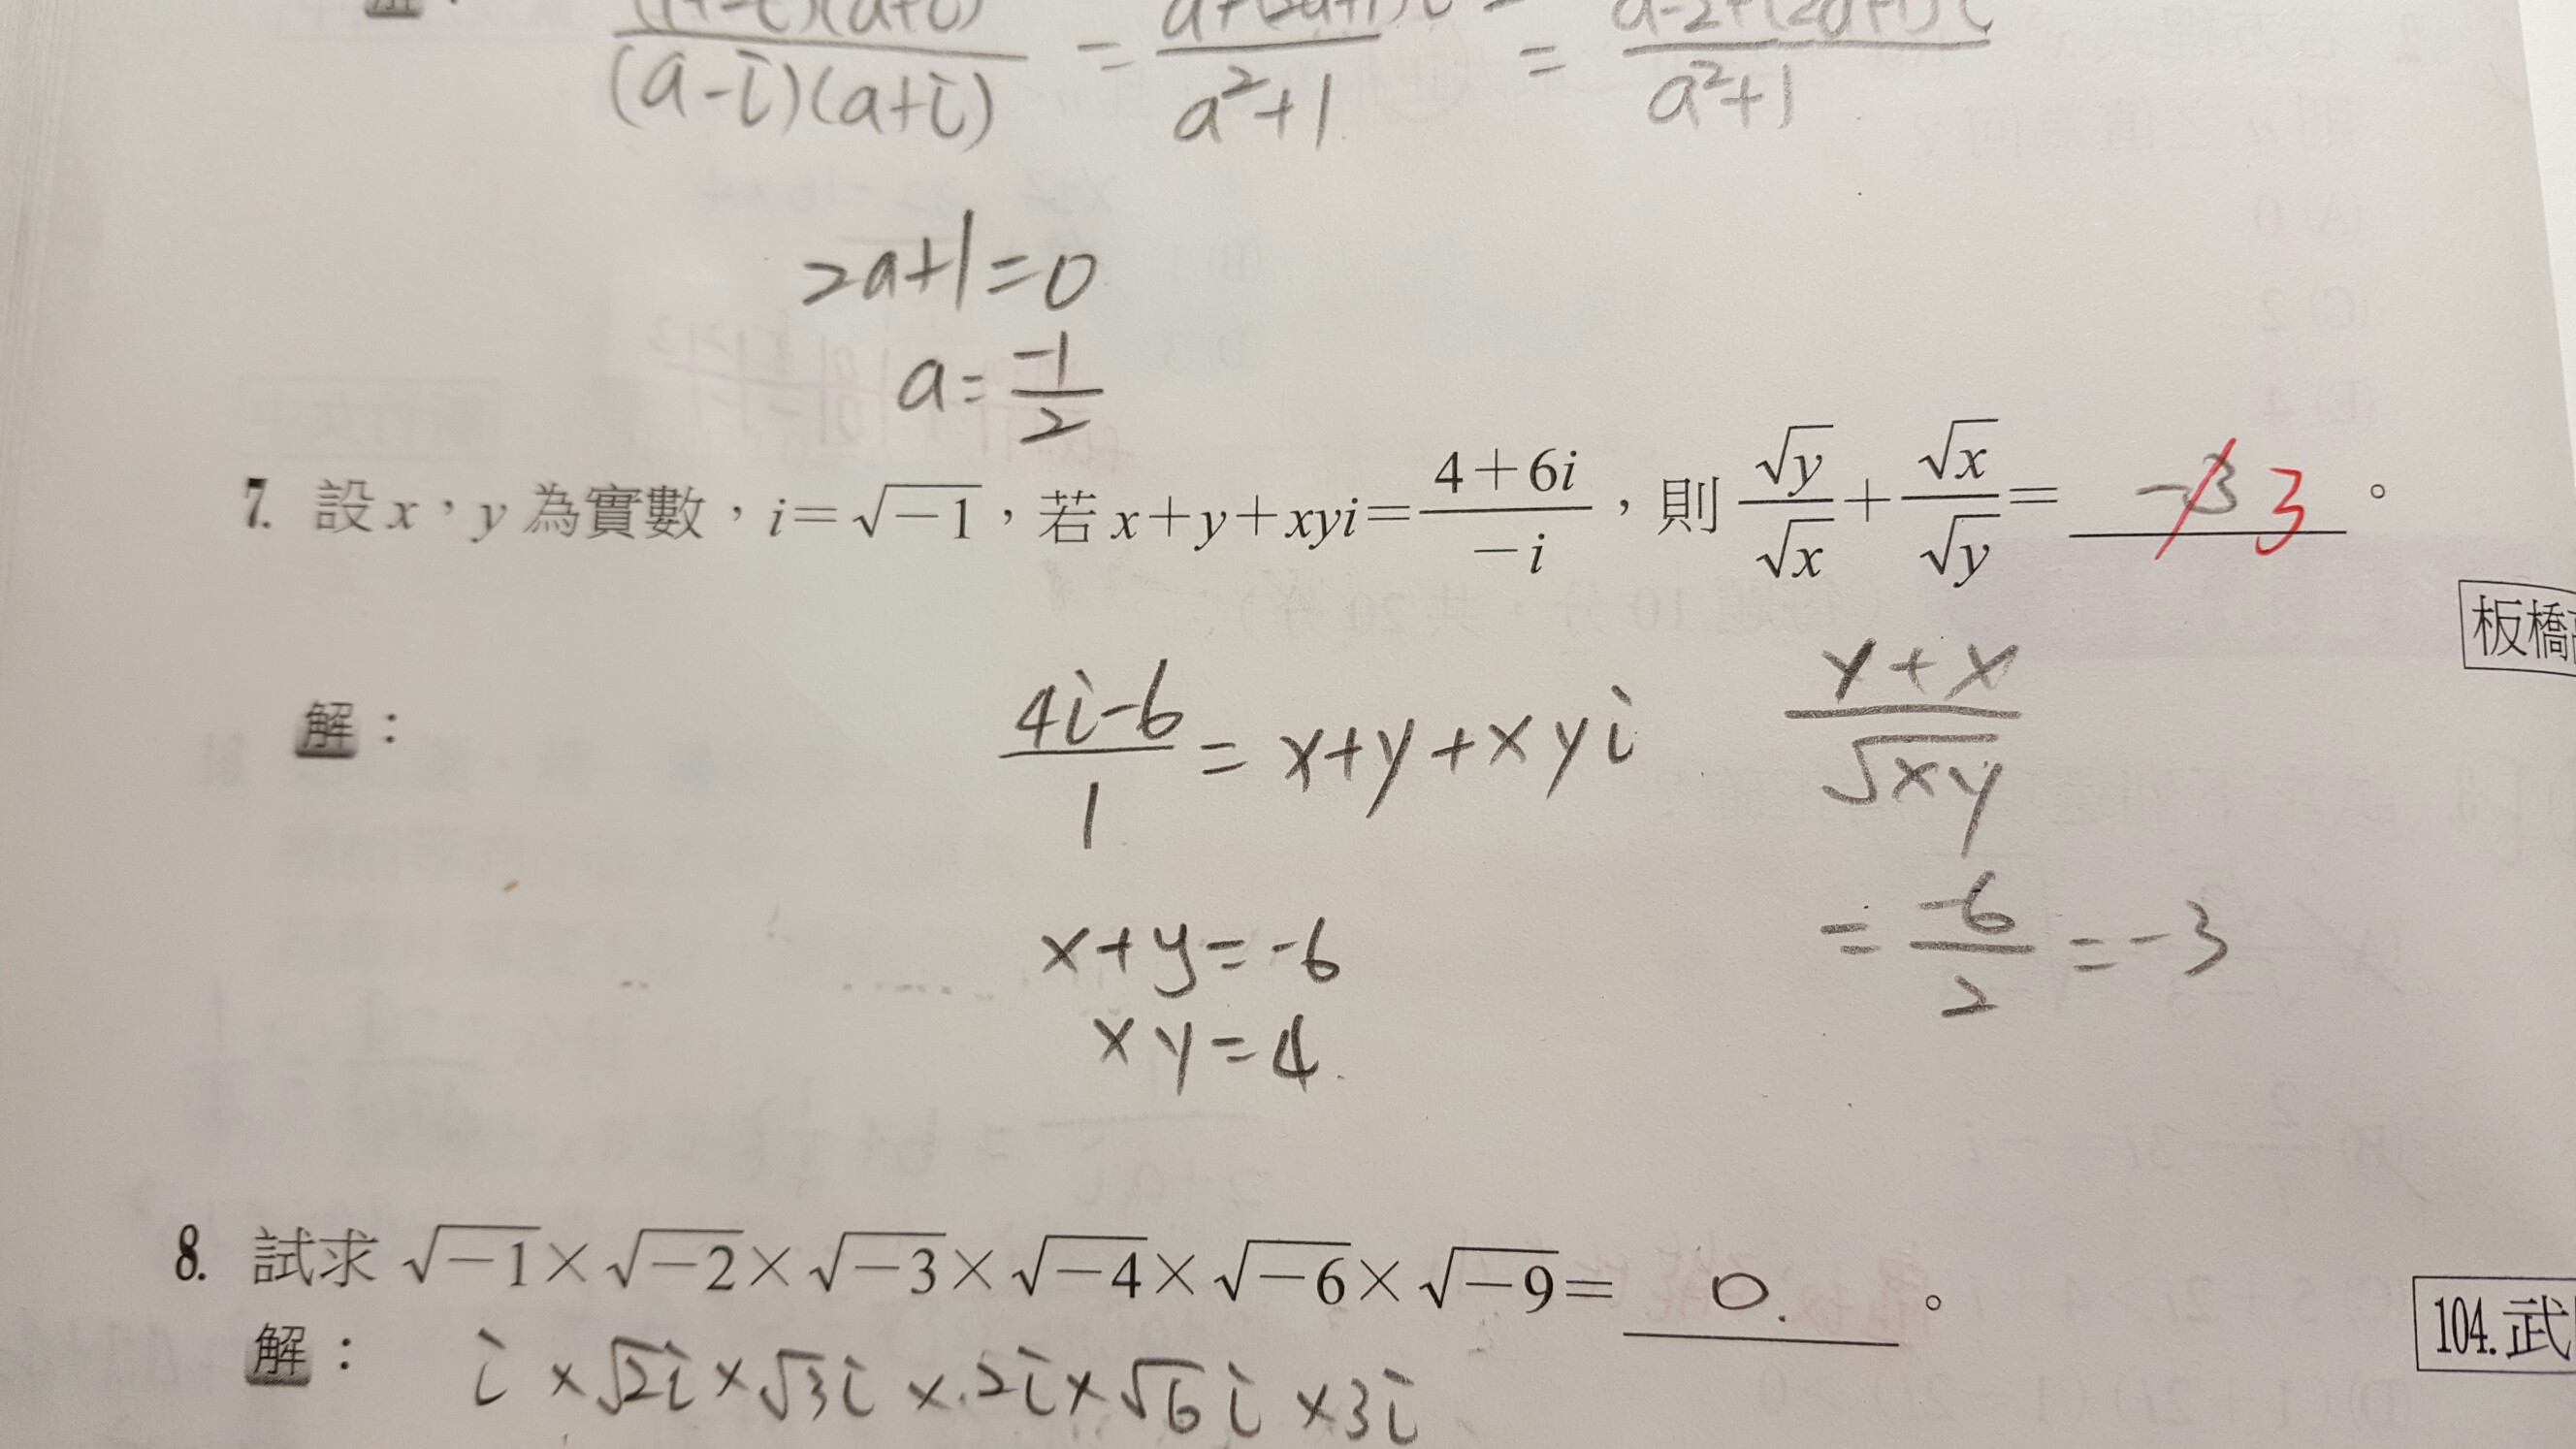 (a-i)(a+i) = a²+1 = a²+1
2a+1=0
a= -1/2
7. 設x，y為實數，i=√-1，若x+y+xyi= (4+6i)/(-i)，則 √y/√x + √x/√y = -3 3 。
板橋
解：
(4i-6)/1 = x+y+xyi
x+y=-6
xy=4
(y+x)/√xy
= -6/2 = -3
8. 試求 √-1×√-2×√-3×√-4×√-6×√-9= 0. 。
104.武
解： i×√2i×√3i×2i×√6i×3i